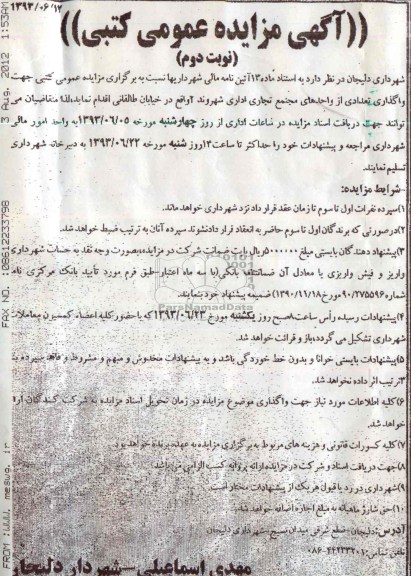 ۱۳۹۳/۰۶/۱۲
((آگهی مزایده عمومی کتبی))
(نوبت دوم)
شهرداری دلیجان در نظر دارد به استناد ماده۱۳آئین نامه مالی شهرداریها نسبت به برگزاری مزایده عمومی کتبی جهت
واگذاری تعدادی از واحدهای مجتمع تجاری اداری شهروند ۲واقع در خیابان طالقانی اقدام نماید،لذا متقاضیان می
توانند جهت دریافت اسناد مزایده در ساعات اداری از روز چهارشنبه مورخه ۱۳۹۳/۰۶/۰۵به واحد امور مالی
شهرداری مراجعه و پیشنهادات خود را حداکثر تا ساعت۱۳روز شنبه مورخه ۱۳۹۳/۰۶/۲۲ به دبیرخانه شهرداری
تسلیم نمایند.
-شرایط مزایده:
۱)سپرده نفرات اول تا سوم تا زمان عقد قرارداد نزد شهرداری خواهد ماند.
۲)درصورتی که برندگان اول تا سوم حاضر به انعقاد قرارداد نشوند سپرده آنان به ترتیب ضبط خواهد شد.
۳)پیشنهاد دهندگان بایستی مبلغ ۵۰۰۰۰۰۰ریال بابت ضمانت شرکت در مزایده،بصورت وجه نقد به حساب شهرداری
واریز و فیش واریزی یا معادل آن ضمانتنامه بانکی(با سه ماه اعتبار-طبق فرم مورد تأیید بانک مرکزی نامه
شماره۹۰/۲۷۵۵۹۶مورخ۱۳۹۰/۱۱/۱۸)ضمیمه پیشنهاد خود نمایند.
۴)پیشنهادات رسیده رأس ساعت۸صبح روز یکشنبه مورخ ۱۳۹۳/۰۶/۲۳که با حضور کلیه اعضاء کمسیون معاملات
شهرداری تشکیل می گردد،باز و قرائت خواهد شد.
۵)پیشنهادات بایستی خوانا و بدون خط خوردگی باشد و به پیشنهادات مخدوش و مبهم و مشروط و فاقد سپرده بند
۳ترتیب اثر داده نخواهد شد.
۶)کلیه اطلاعات مورد نیاز جهت واگذاری موضوع مزایده در زمان تحویل اسناد مزایده به شرکت کنندگان ارائه
خواهد شد.
۷)کلیه کسورات قانونی و هزینه های مربوط به برگزاری مزایده به عهده برنده خواهد بود.
۸)جهت دریافت اسناد و شرکت در مزایده ارائه پروانه کسب الزامی می باشد.
۹)شهرداری در رد یا قبول هر یک از پیشنهادات مختار است.
۱۰)حق شارژ ماهیانه به مبلغ اجاره اضافه خواهد شد.
آدرس:دلیجان-ضلع شرقی میدان بسیج-شهرداری دلیجان
تلفن تماس:۴۴۲۲۳۲۰۱-۰۸۶
مهدی اسماعیلی-شهردار دلیجان
3 Aug. 2012 1:53AM
FAX NO. :08612233798
FROM :www. mesug. ir
ParsNamadData